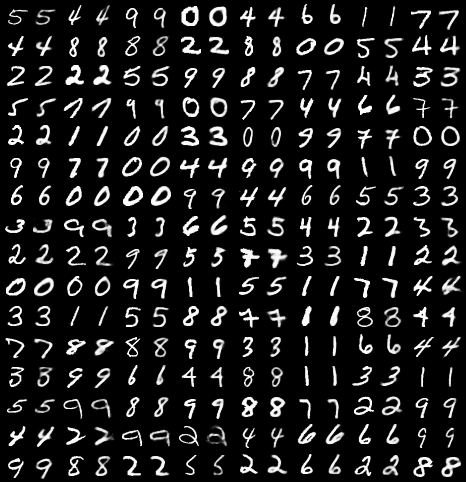 5 5 4 4 9 9 0 0 4 4 6 6 1 1 7 7
4 4 8 8 8 8 2 2 8 8 0 0 5 5 4 4
2 2 2 2 5 5 9 9 8 8 7 7 4 4 3 3
5 5 7 7 9 9 0 0 7 7 4 4 6 6 7 7
2 2 1 1 0 0 3 3 0 0 9 9 7 7 0 0
9 9 7 7 0 0 4 4 9 9 9 9 1 1 9 9
6 6 0 0 0 0 9 9 4 4 6 6 5 5 3 3
3 3 9 9 3 3 6 6 5 5 4 4 2 2 3 3
2 2 2 2 9 9 5 5 7 7 3 3 1 1 2 2
0 0 0 0 9 9 1 1 5 5 1 1 7 7 4 4
3 3 1 1 5 5 8 8 7 7 1 1 8 8 4 4
7 7 8 8 8 8 9 9 3 3 1 1 6 6 4 4
3 3 9 9 6 6 4 4 8 8 1 1 3 3 1 1
5 5 9 9 8 8 9 9 8 8 7 7 2 2 9 9
4 4 2 2 9 9 2 2 4 4 6 6 6 6 9 9
9 9 8 8 2 2 5 5 2 2 6 6 2 2 8 8